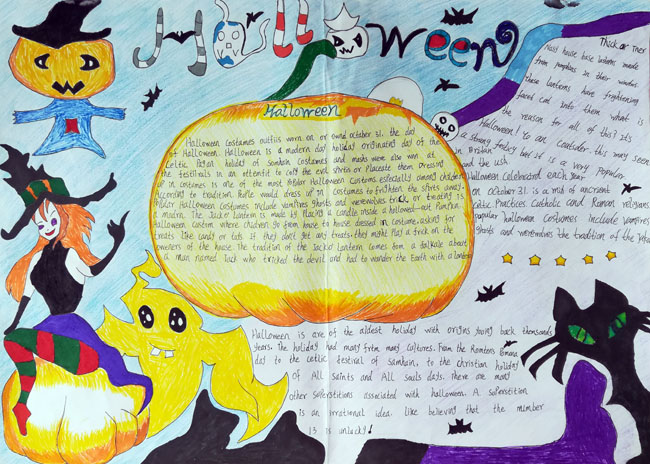 Halloween
Halloween
Halloween costumes outfits worn on or around october 31. the day
of Halloween. Halloween is a modern day holiday originated day of the
Celtic Pagan holiday of Samhain Costumes and masks were also worn at
the festivals in an attempt to the evil spirits or Placate them Dressing
up in costumes is one of the most Popular Halloween Customs. especially among children
According to tradition. People would dress up in costumes to frighten the spirits away.
Popular Halloween Costumes include vampires ghosts and werewolves trick or treating is
a modern. The Jack o' Lantern is made by Placing a candle inside a hollowed-out Pumpkin
halloween custom where children go from house to house dressed in costumes.asking for
treats like candy or toys If they don't get any treats.they might Play a trick on the
owners of the house. The tradition of the Jacko' Lantern comes from a folktale about
a man named Jack who tricked the devil and had to wander the Earth with a lantern
Thick or Treat
Most house have lanterns made
from pumpkins in their windows.
These lanterns have frightening
faces cut into them. what is
the reason for all of this? It's
Halloween! To an outsider. this may seem
a strong fedey but it is a very popular
in Britain
and the USA
Halloween celebrated each year
on October 31. is a mix of ancient
Celtic Practices Catholic and Roman religious
popular halloween costumes include vampires
ghosts and werewolves the tradition of the Jacko
Halloween is are of the oldest holiday with origins going back thousands
years. The holiday had many from many cultures. From the Romtens
day to the celtic festival of samhain, to the christian holiday
of All saints and All souls days. There are many
other superstitions associated with halloween. A superstition
is an irrational idea. like believing that the number
13 is unlucky!